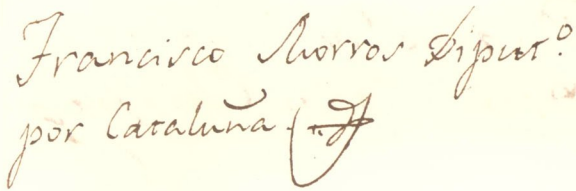 Francisco Morros Diput.º
por Cataluña.